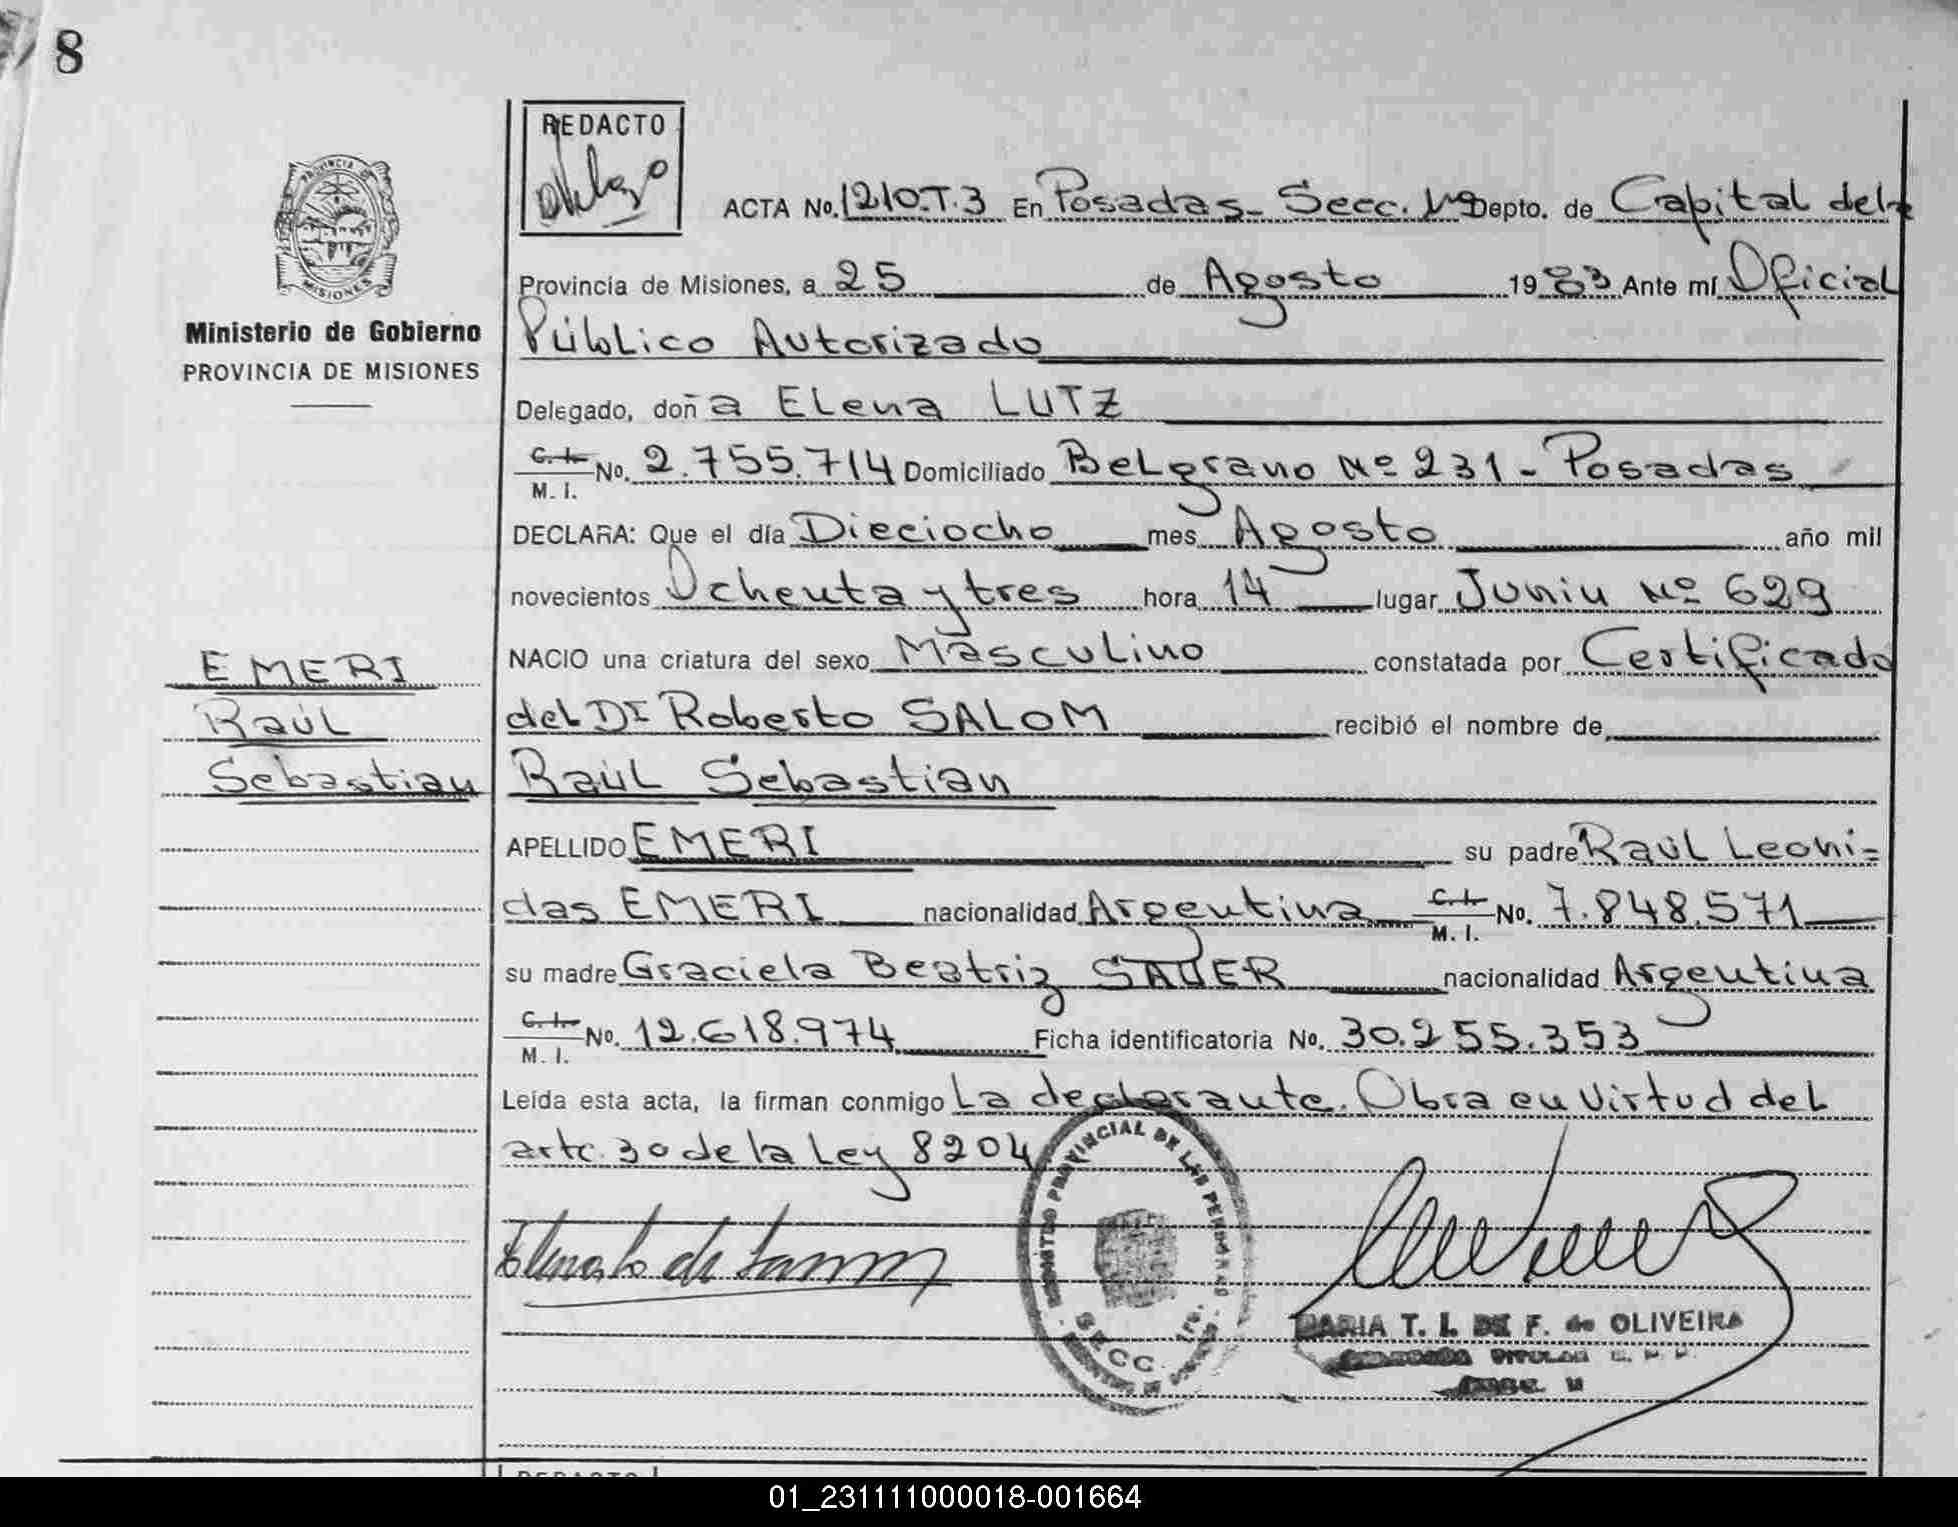 8
REDACTO
ACTA No. 1210.T.3 En Posadas- Secc. 1ª Depto. de Capital de la
Provincia de Misiones, a 25 de Agosto 1983 Ante mí Oficial
Público Autorizado
Ministerio de Gobierno
PROVINCIA DE MISIONES
Delegado, doña Elena LUTZ
C.I. M.I. No. 2.755.714 Domiciliado Belgrano Nº 231 - Posadas
DECLARA: Que el día Dieciocho mes Agosto año mil
novecientos Ochenta y tres hora 14 lugar Junin Nº 629
NACIO una criatura del sexo Masculino constatada por Certificado
del Dr Roberto SALOM recibió el nombre de
Raúl Sebastian
EMERI
Raúl
Sebastian
APELLIDO EMERI su padre Raúl Leoni-
das EMERI nacionalidad Argentina C.I. M.I. No. 7.848.571
su madre Graciela Beatriz SAUER nacionalidad Argentina
C.I. M.I. No. 12.618.974 Ficha identificatoria No. 30.255.353
Leída esta acta, la firman conmigo La declarante. Obra en virtud del
artc. 30 de la Ley 8204
PROVINCIAL DE LAS PERSONAS
SECC. 1ra.
MARIA T. I. DE F. de OLIVEIRA
01_231111000018-001664